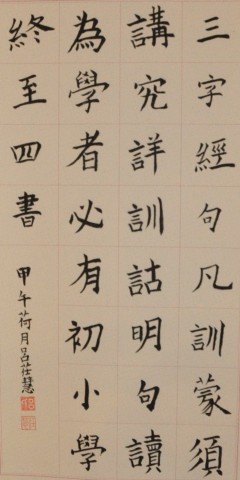 三字經句凡訓蒙須
講究詳訓詁明句讀
為學者必有初小學
終至四書
甲午荷月呂莊慧